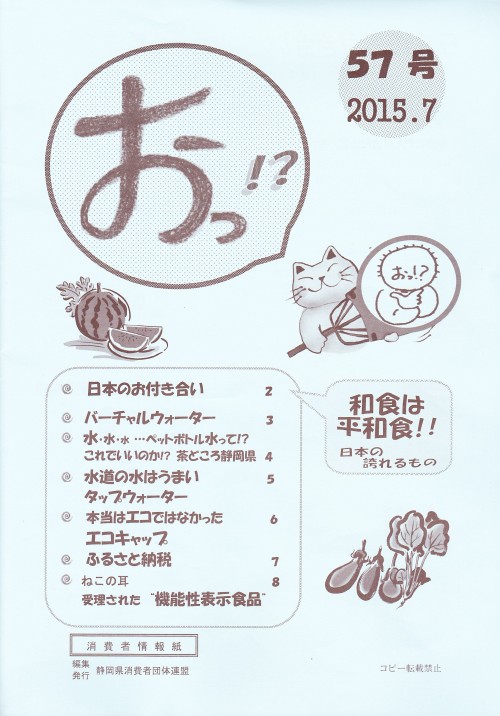 57 号
2015.7
おっ!?
おっ!?
日本のお付き合い 2
バーチャルウォーター 3
水・水・水 …ペットボトル水って!?
これでいいのか!? 茶どころ静岡県 4
水道の水はうまい 5
タップウォーター
本当はエコではなかった 6
エコキャップ
ふるさと納税 7
ねこの耳 8
受理された “機能性表示食品”
和食は
平和食!!
日本の
誇れるもの
消費者情報紙
編集
発行 静岡県消費者団体連盟
コピー転載禁止